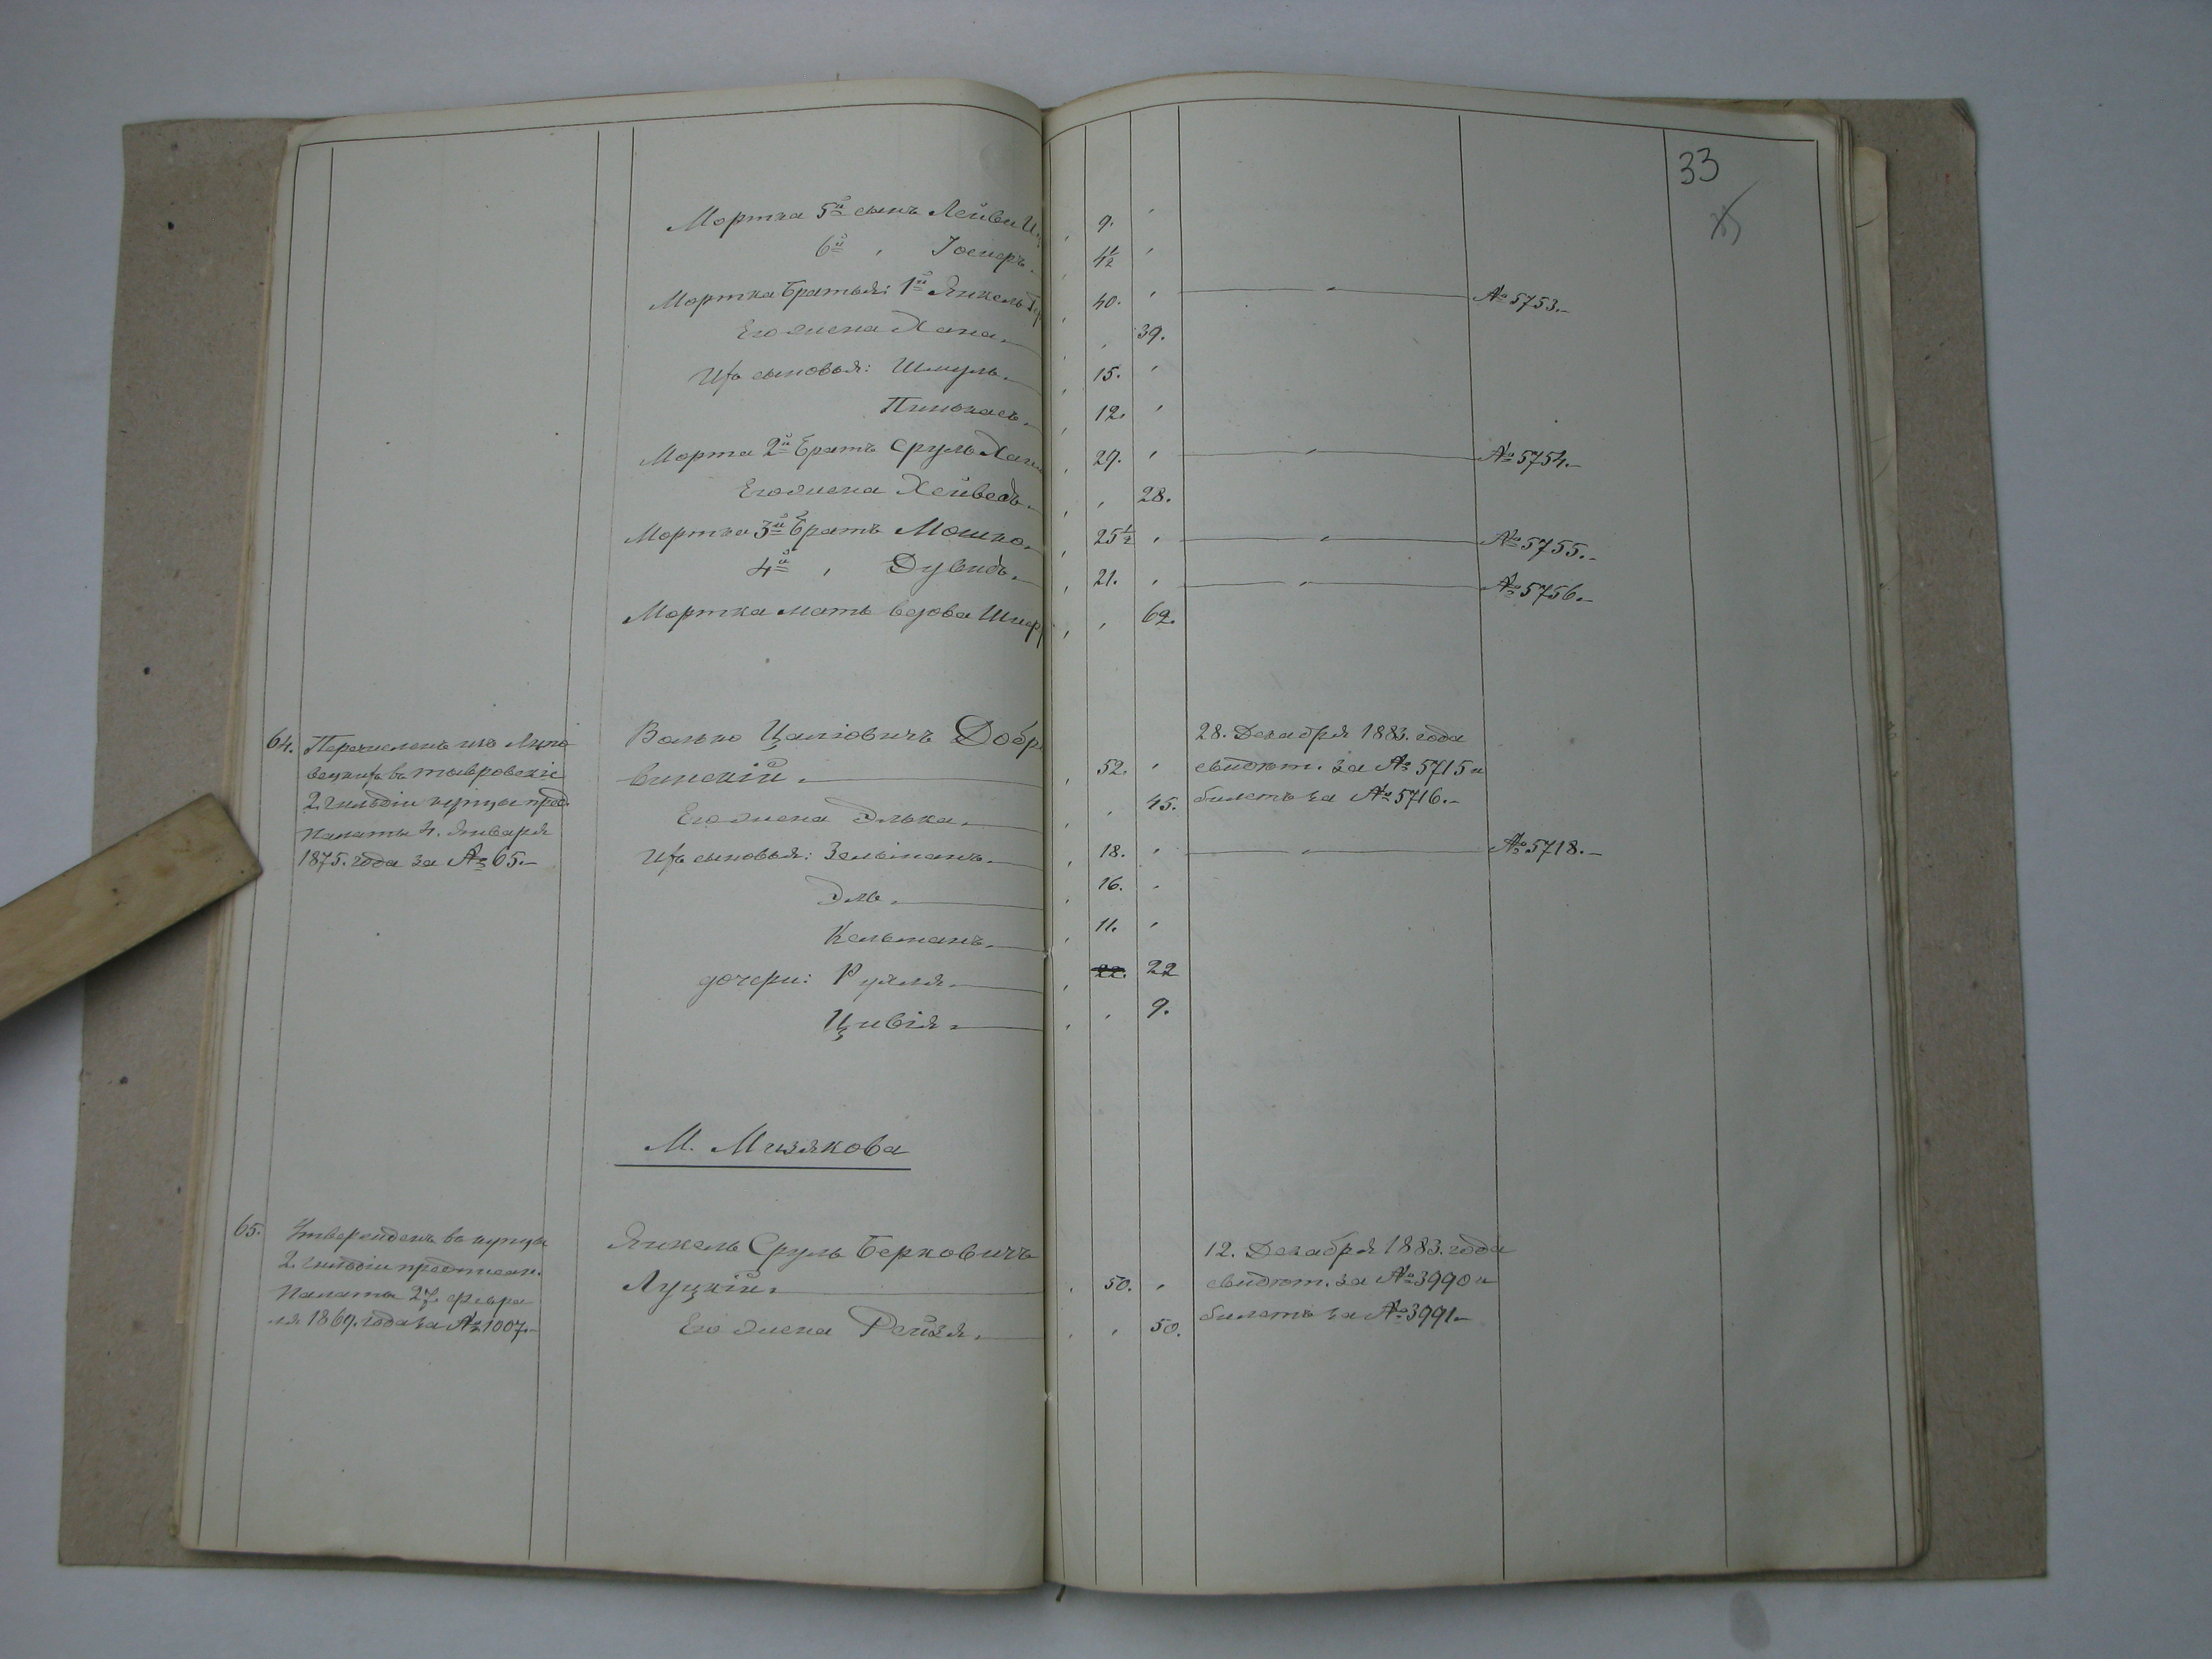 33
Мортка 5й сынъ Лейви
9.
6й " Іосифъ.
4½
Мортка братья: 1й Янкель
40.
№ 5753.-
Его жена Хана.
39.
Ихъ сыновья: Шмуль.
15.
Пинхасъ.
12.
Мортка 2й братъ Сруль
29.
№ 5754.-
Его жена Хейведъ.
28.
Мортка 3й братъ Мошко.
25½
№ 5755.-
4й " Дувидъ.
21.
№ 5756.-
Мортка мать вдова
62.
64. Перечисленъ изъ Липо
вецкихъ въ тывровскіе
2. гильдіи купцы пред.
Палаты 4. Января
1875. года за № 65.-
Волько Цаліовичъ Добр
винскій.
52.
28. Декабря 1883. года
свидѣт. за № 5715 и
билетъ за № 5716.-
Его жена Элька.
45.
Ихъ сыновья: Зельманъ.
18.
№ 5718.-
Эль.
16.
Кельманъ.
11.
дочери: Рухля.
22. 22
Цивія.
9.
М. Мизякова
65. Утвержденъ въ купцы
2. гильдіи предписан.
Палаты 27 февра
ля 1869. года за № 1007.-
Янкель Сруль Берковичъ
Луцкій.
50.
12. Декабря 1883. года
свидѣт. за № 3990 и
билетъ за № 3991.-
Его жена Рейзя.
50.